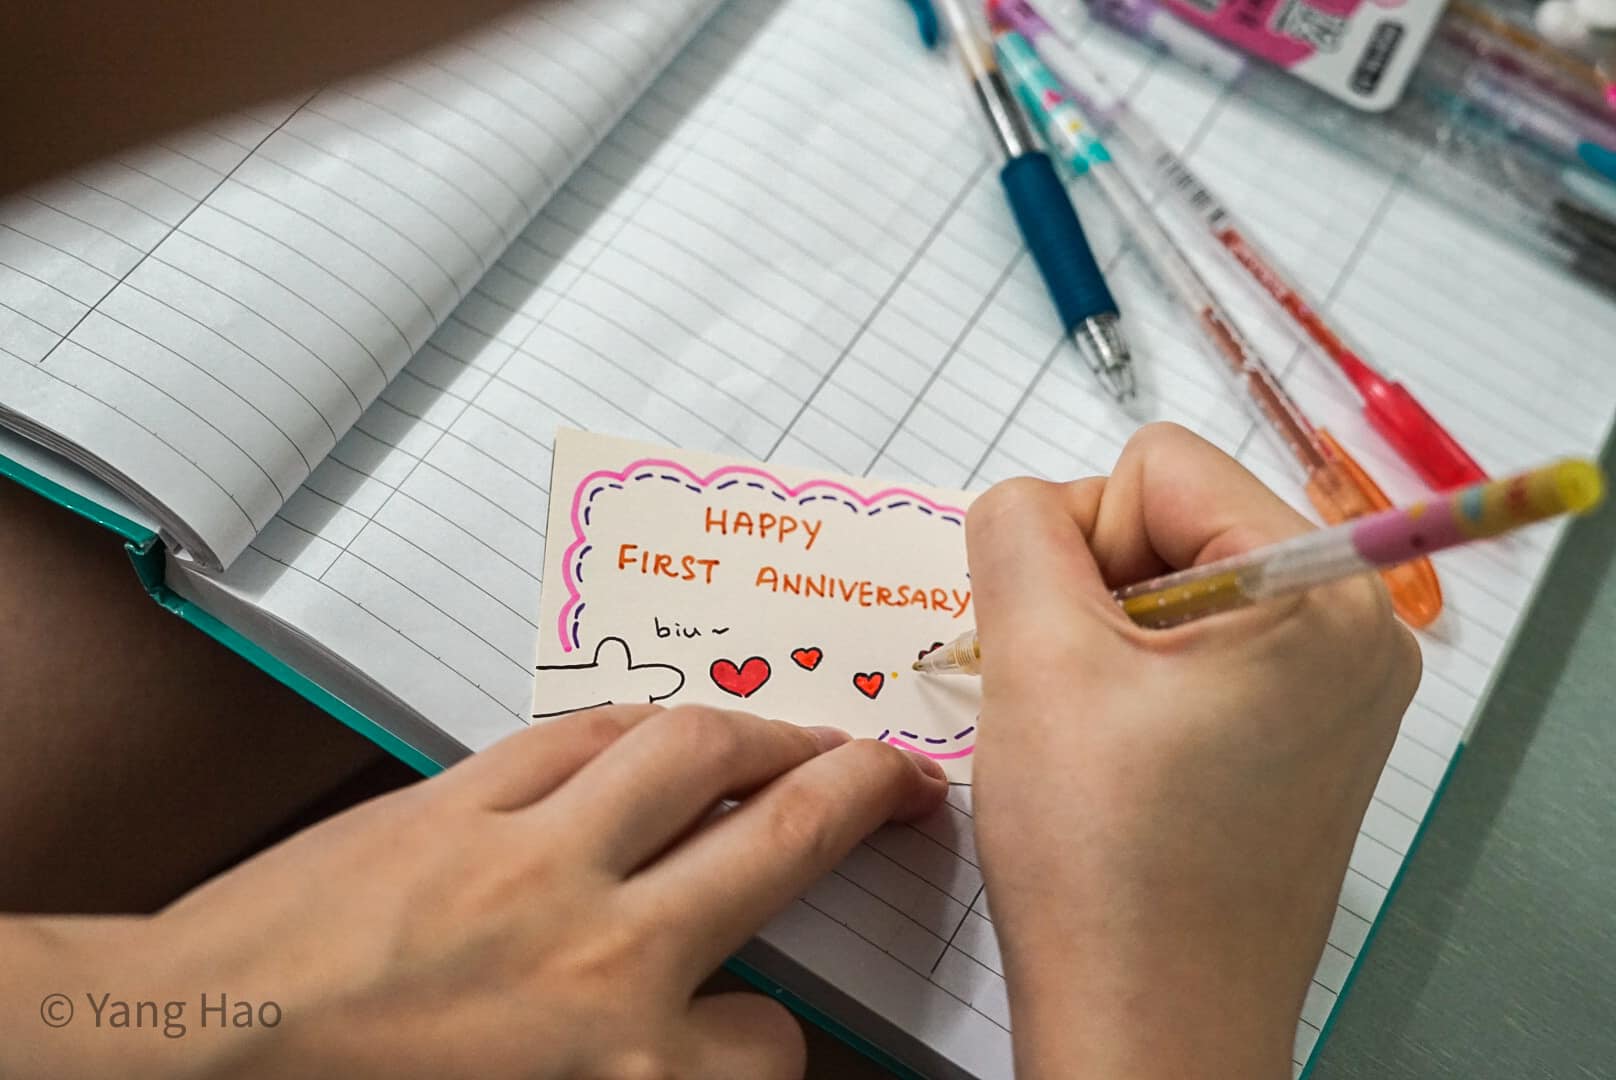 HAPPY
FIRST ANNIVERSARY
biu~
© Yang Hao